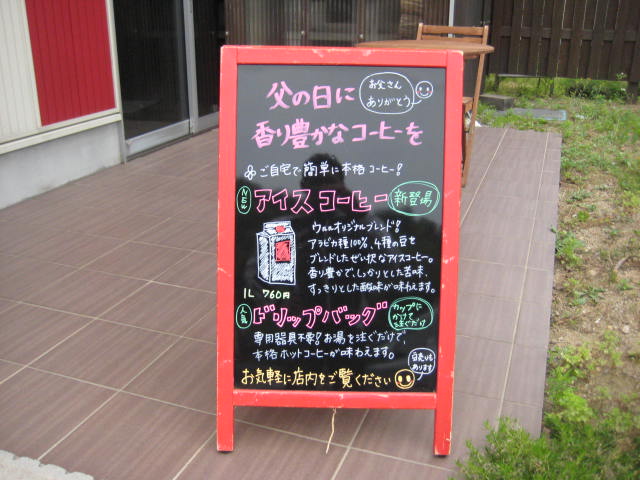 父の日に
お父さん
ありがとう
香り豊かなコーヒーを
ご自宅で簡単に本格コーヒー!
NEW
アイスコーヒー
新登場
オリジナルブレンド!
アラビカ種100%、4種の豆を
ブレンドしたぜい沢なアイスコーヒー。
香り豊かで、しっかりとした苦味、
すっきりとした酸味が味わえます。
1L 760円
人気
ドリップバッグ
カップに
かけて
注ぐだけ
専用器具不要!お湯を注ぐだけで、
本格ホットコーヒーが味わえます。
お気軽に店内をご覧ください
あります